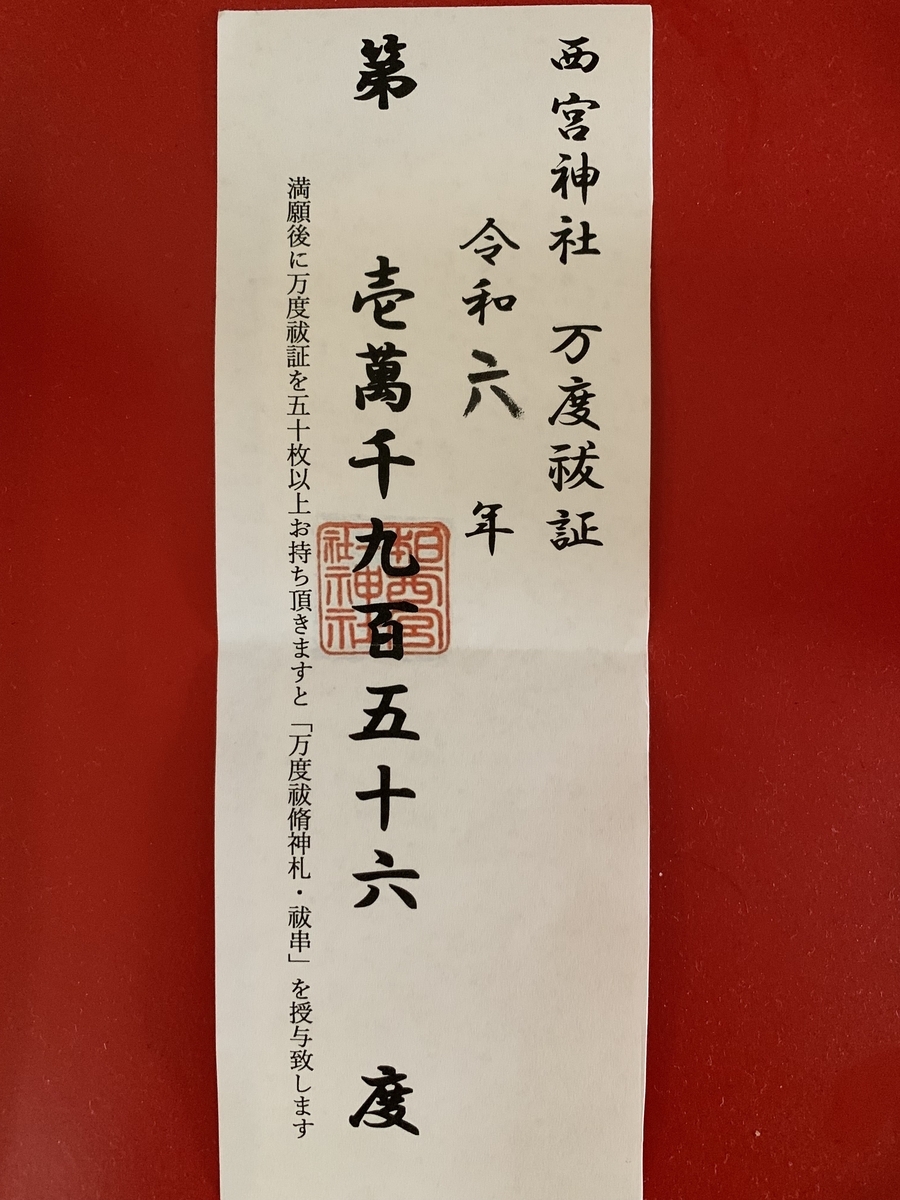 西宮神社 万度祓証
令和六年
第 壱萬千九百五十六 度
満願後に万度祓証を五十枚以上お持ち頂きますと「万度祓脩神札・祓串」を授与致します